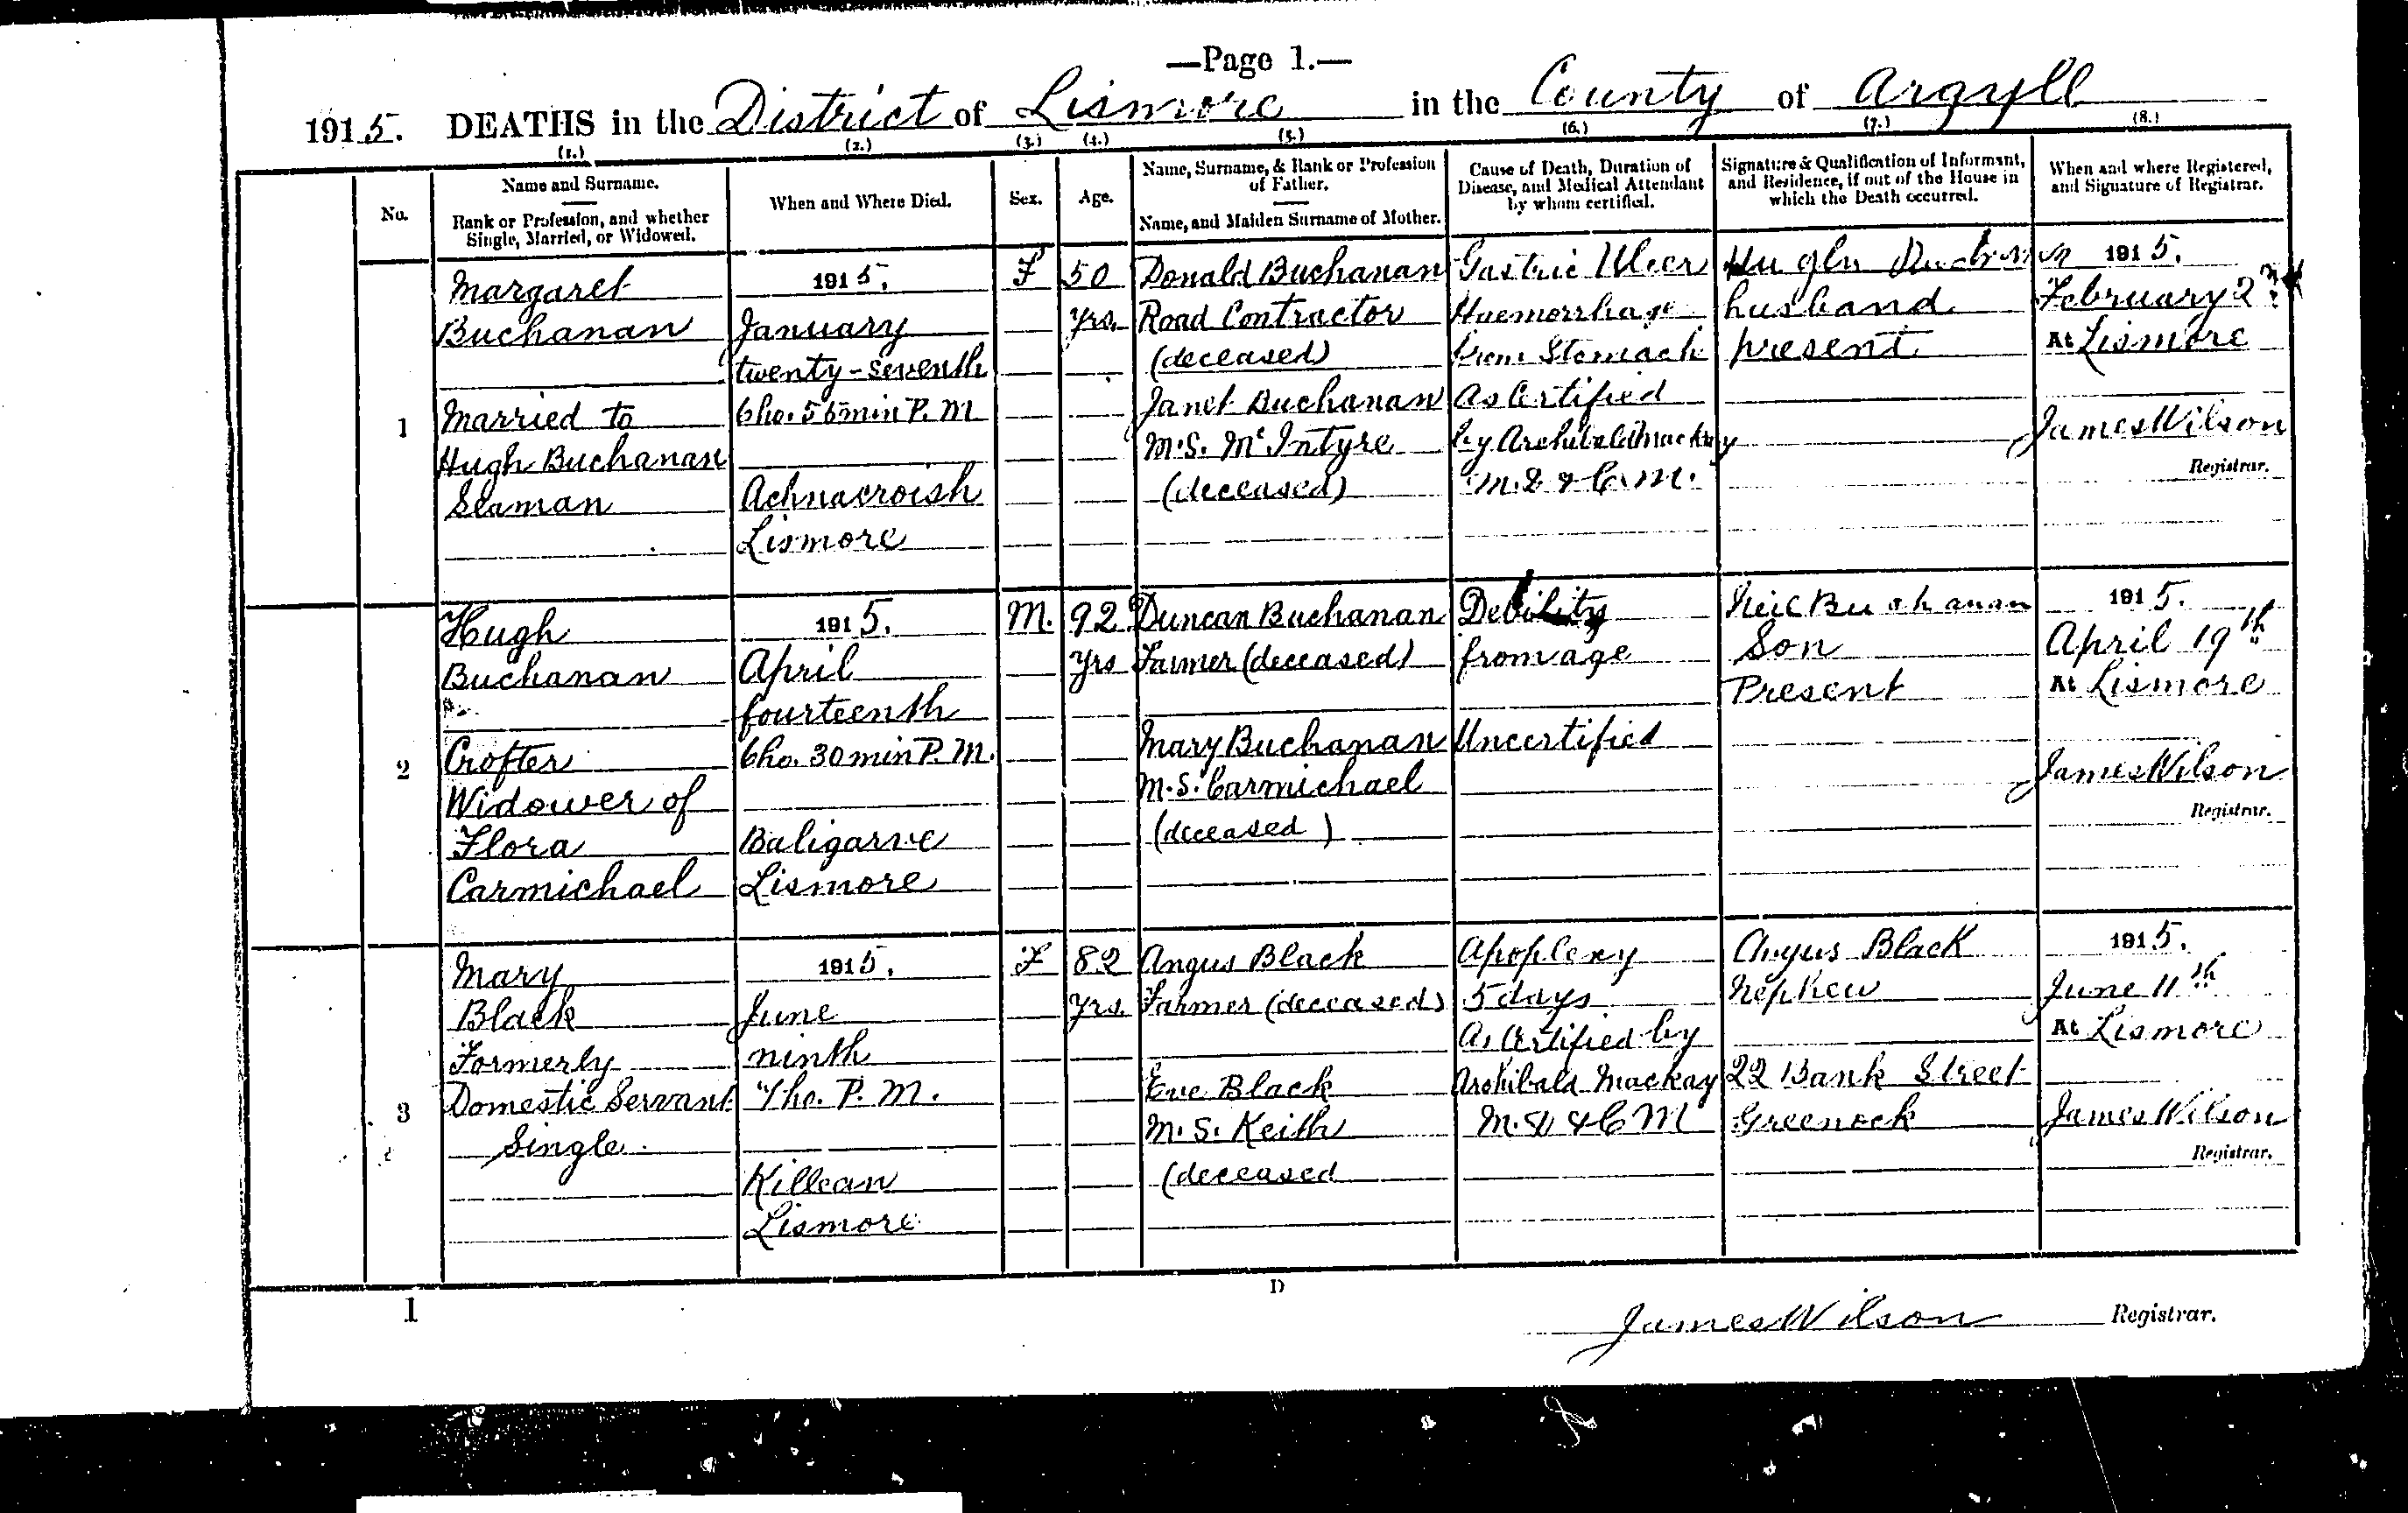 —Page 1.—
1915. DEATHS in the District of Lismore in the County of Argyll
(1.) (2.) (3.) (4.) (5.) (6.) (7.) (8.)
No.
Name and Surname.
Rank or Profession, and whether
Single, Married, or Widowed.
When and Where Died.
Sex.
Age.
Name, Surname, & Rank or Profession
of Father.
Name, and Maiden Surname of Mother.
Cause of Death, Duration of
Disease, and Medical Attendant
by whom certified.
Signature & Qualification of Informant,
and Residence, if out of the House in
which the Death occurred.
When and where Registered,
and Signature of Registrar.
1
Margaret
Buchanan
Married to
Hugh Buchanan
Seaman
1915.
January
twenty-seventh
6ho. 55min P. M
Achnacroish
Lismore
F
50
yrs.
Donald Buchanan
Road Contractor
(deceased)
Janet Buchanan
M.S. McIntyre
(deceased)
Gastric Ulcer
Haemorrhage
from Stomach
As Certified
by Archibald Mackay
M.B & C.M.
Hugh Buchanan
husband
present
1915.
February 2nd
At Lismore
James Wilson
Registrar.
2
Hugh
Buchanan
Crofter
Widower of
Flora
Carmichael
1915.
April
fourteenth
6ho. 30min P. M.
Baligarve
Lismore
M.
92
yrs
Duncan Buchanan
Farmer (deceased)
Mary Buchanan
M.S. Carmichael
(deceased)
Debility
from age
Uncertified
Neil Buchanan
Son
Present
1915.
April 19th
At Lismore
James Wilson
Registrar.
3
Mary
Black
Formerly
Domestic Servant
Single
1915.
June
ninth
7ho. P. M.
Killean
Lismore
F
82
yrs.
Angus Black
Farmer (deceased)
Eve Black
M. S. Keith
(deceased
Apoplexy
5 days
As Certified by
Archibald Mackay
M.B & C M
Angus Black
Nephew
22 Bank Street
Greenock
1915.
June 11th
At Lismore
James Wilson
Registrar.
1
D
James Wilson Registrar.